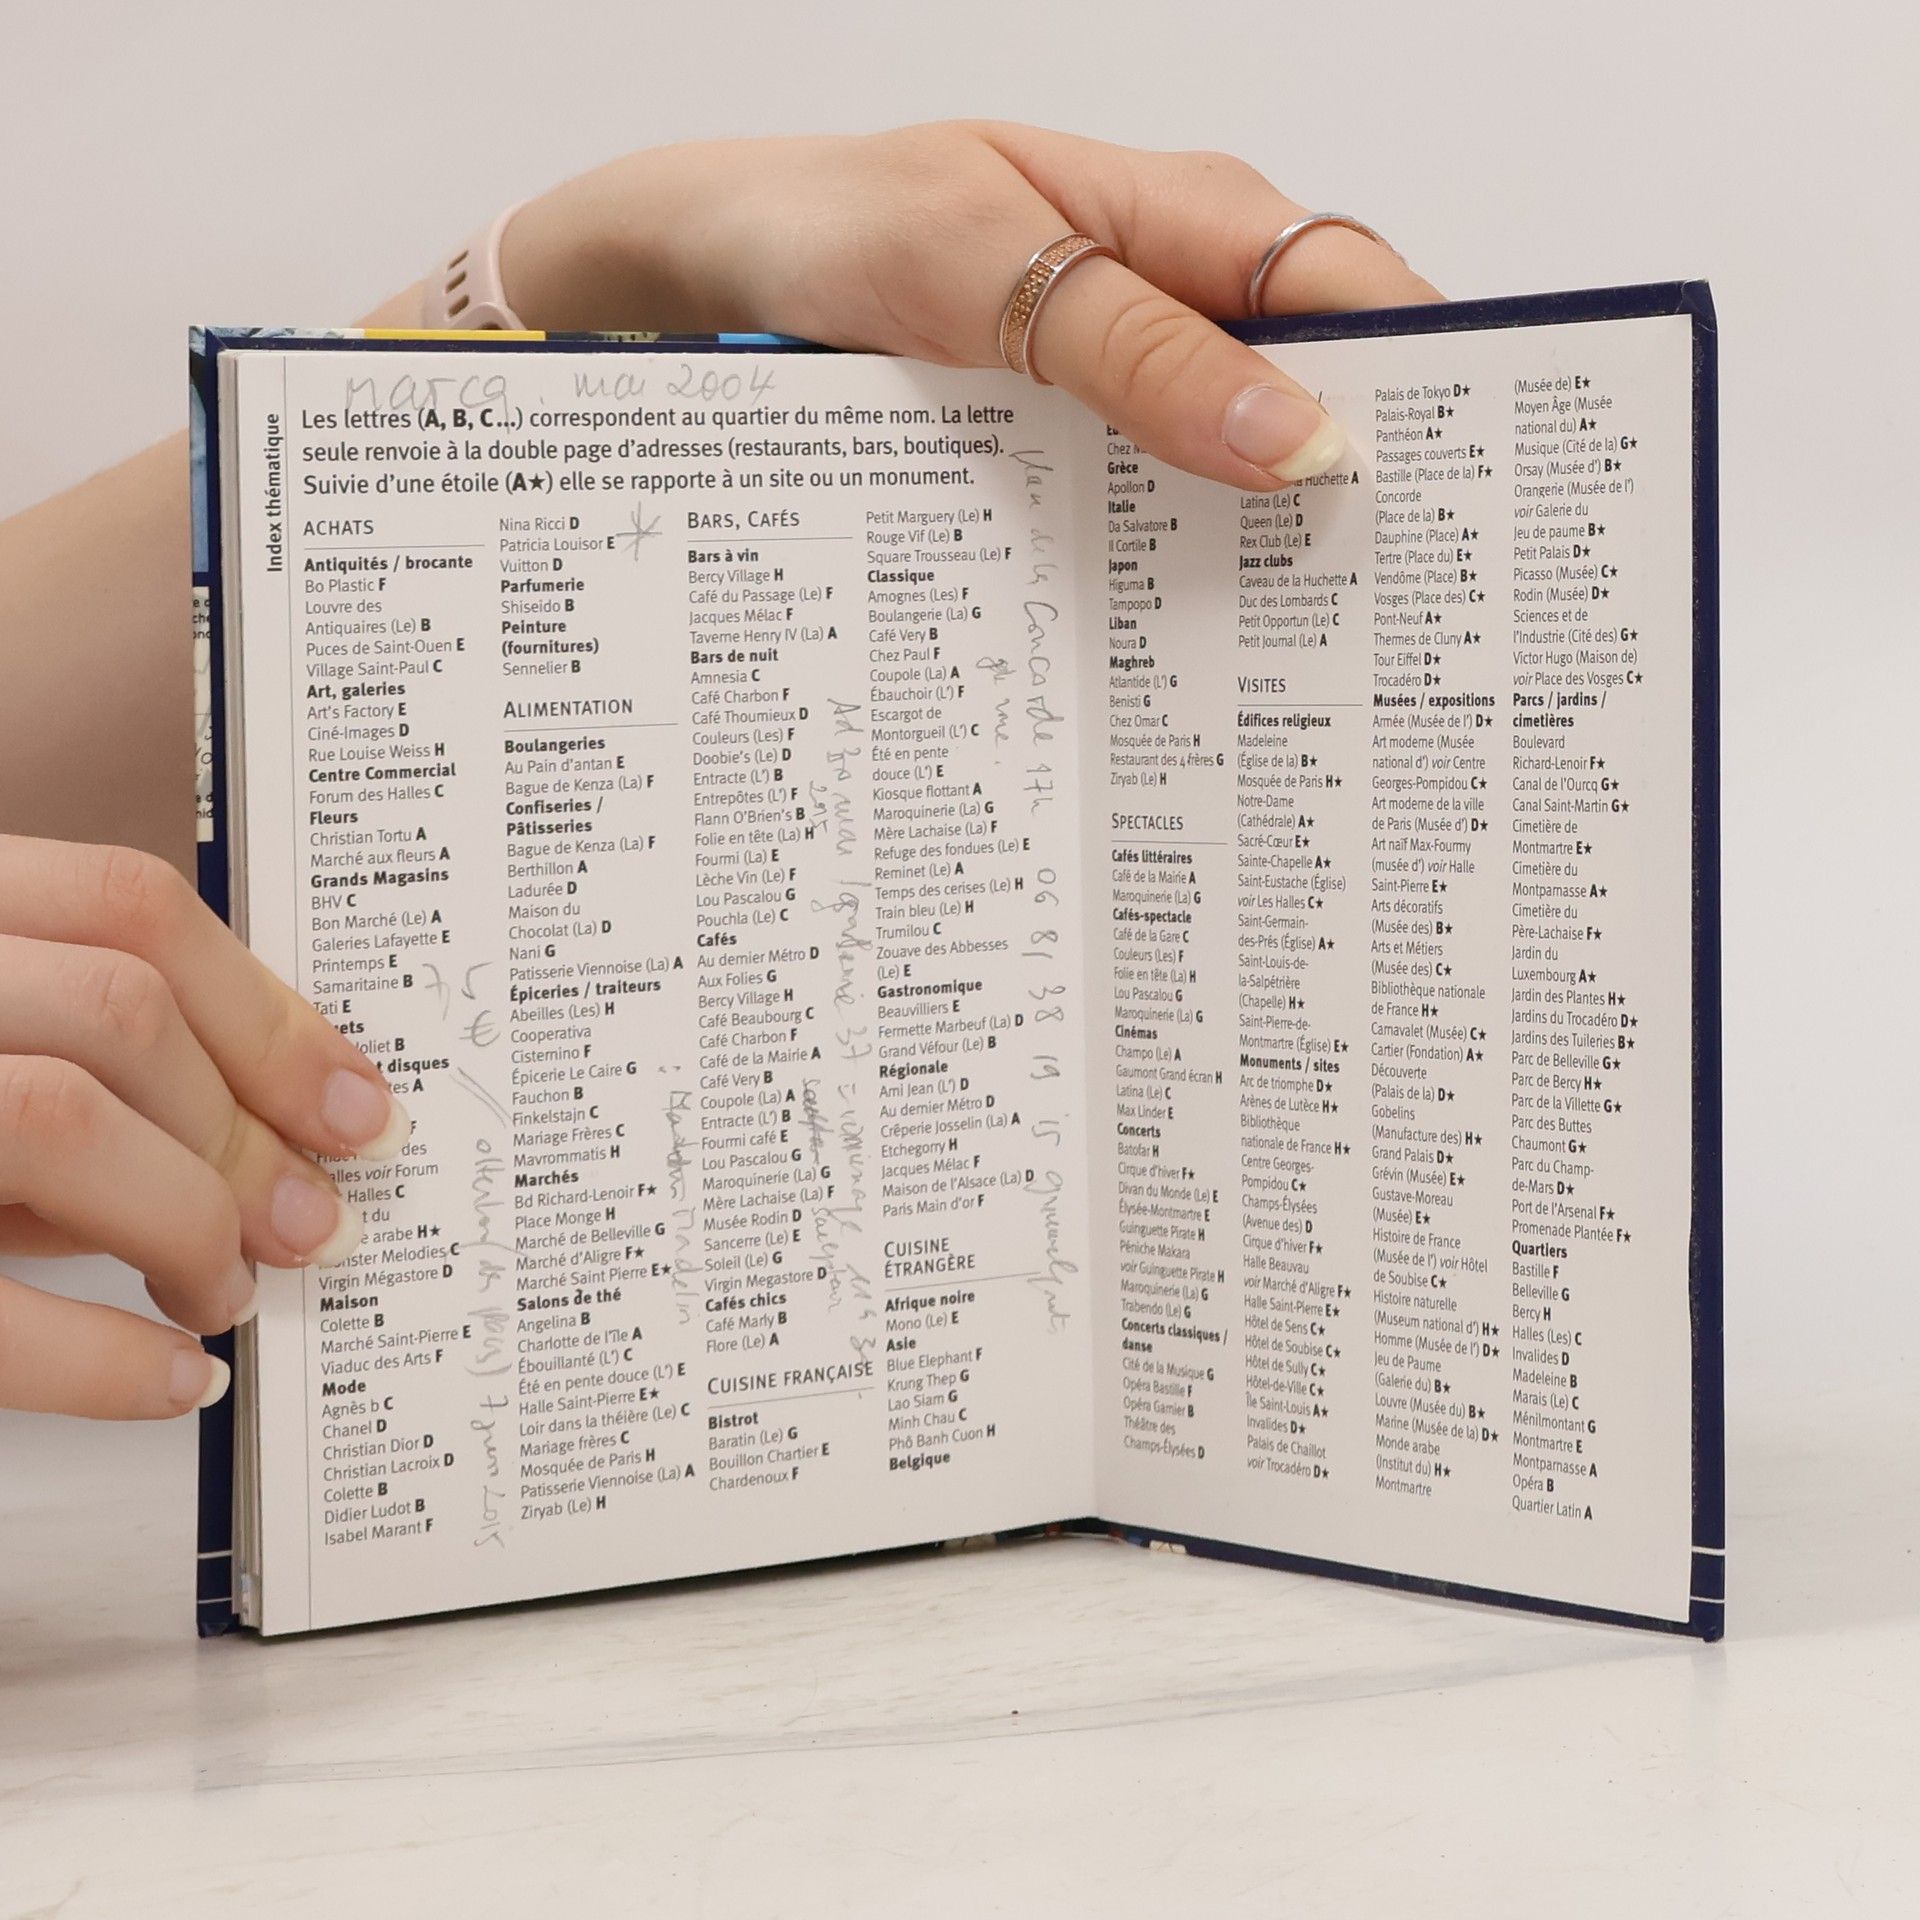 marcq. mai 2004
Index thématique
Les lettres (A, B, C...) correspondent au quartier du même nom. La lettre
seule renvoie à la double page d'adresses (restaurants, bars, boutiques).
Suivie d'une étoile (A★) elle se rapporte à un site ou un monument.
ACHATS
Antiquités / brocante
Bo Plastic F
Louvre des
Antiquaires (Le) B
Puces de Saint-Ouen E
Village Saint-Paul C
Art, galeries
Art's Factory E
Ciné-Images D
Rue Louise Weiss H
Centre Commercial
Forum des Halles C
Fleurs
Christian Tortu A
Marché aux fleurs A
Grands Magasins
BHV C
Bon Marché (Le) A
Galeries Lafayette E
Printemps E
Samaritaine B
Tati E
ets
oliet B
t disques
tes A
F
des
alles voir Forum
Halles C
t du
e arabe H★
nster Melodies C
Virgin Mégastore D
Maison
Colette B
Marché Saint-Pierre E
Viaduc des Arts F
Mode
Agnès b C
Chanel D
Christian Dior D
Christian Lacroix D
Colette B
Didier Ludot B
Isabel Marant F
Nina Ricci D
Patricia Louisor E
Vuitton D
Parfumerie
Shiseido B
Peinture
(fournitures)
Sennelier B
ALIMENTATION
Boulangeries
Au Pain d'antan E
Bague de Kenza (La) F
Confiseries /
Pâtisseries
Bague de Kenza (La) F
Berthillon A
Ladurée D
Maison du
Chocolat (La) D
Nani G
Patisserie Viennoise (La) A
Épiceries / traiteurs
Abeilles (Les) H
Cooperativa
Cisternino F
Épicerie Le Caire G
Fauchon B
Finkelstajn C
Mariage Frères C
Mavrommatis H
Marchés
Bd Richard-Lenoir F★
Place Monge H
Marché de Belleville G
Marché d'Aligre F★
Marché Saint Pierre E★
Salons de thé
Angelina B
Charlotte de l'île A
Ébouillanté (L') C
Été en pente douce (L') E
Halle Saint-Pierre E★
Loir dans la théière (Le) C
Mariage frères C
Mosquée de Paris H
Patisserie Viennoise (La) A
Ziryab (Le) H
BARS, CAFÉS
Bars à vin
Bercy Village H
Café du Passage (Le) F
Jacques Mélac F
Taverne Henry IV (La) A
Bars de nuit
Amnesia C
Café Charbon F
Café Thoumieux D
Couleurs (Les) F
Doobie's (Le) D
Entracte (L') B
Entrepôtes (L') F
Flann O'Brien's B
Folie en tête (La) H
Fourmi (La) E
Lèche Vin (Le) F
Lou Pascalou G
Pouchla (Le) C
Cafés
Au dernier Métro D
Aux Folies G
Bercy Village H
Café Beaubourg C
Café Charbon F
Café de la Mairie A
Café Very B
Coupole (La) A
Entracte (L') B
Fourmi café E
Lou Pascalou G
Maroquinerie (La) G
Mère Lachaise (La) F
Musée Rodin D
Sancerre (Le) E
Soleil (Le) G
Virgin Megastore D
Cafés chics
Café Marly B
Flore (Le) A
CUISINE FRANÇAISE
Bistrot
Baratin (Le) G
Bouillon Chartier E
Chardenoux F
Petit Marguery (Le) H
Rouge Vif (Le) B
Square Trousseau (Le) F
Classique
Amognes (Les) F
Boulangerie (La) G
Café Very B
Chez Paul F
Coupole (La) A
Ébauchoir (L') F
Escargot de
Montorgueil (L') C
Été en pente
douce (L') E
Kiosque flottant A
Maroquinerie (La) G
Mère Lachaise (La) F
Refuge des fondues (Le) E
Reminet (Le) A
Temps des cerises (Le) H
Train bleu (Le) H
Trumilou C
Zouave des Abbesses
(Le) E
Gastronomique
Beauvilliers E
Fermette Marbeuf (La) D
Grand Véfour (Le) B
Régionale
Ami Jean (L') D
Au dernier Métro D
Crêperie Josselin (La) A
Etchegorry H
Jacques Mélac F
Maison de l'Alsace (La) D
Paris Main d'or F
CUISINE
ÉTRANGÈRE
Afrique noire
Mono (Le) E
Asie
Blue Elephant F
Krung Thep G
Lao Siam G
Minh Chau C
Phô Banh Cuon H
Belgique
de la Concorde 17h 06 81 38 19 15
Chez
Grèce
Apollon D
Italie
Da Salvatore B
Il Cortile B
Japon
Higuma B
Tampopo D
Liban
Noura D
Maghreb
Atlantide (L') G
Benisti G
Chez Omar C
Mosquée de Paris H
Restaurant des 4 frères G
Ziryab (Le) H
SPECTACLES
Cafés littéraires
Café de la Mairie A
Maroquinerie (La) G
Cafés-spectacle
Café de la Gare C
Couleurs (Les) F
Folie en tête (La) H
Lou Pascalou G
Maroquinerie (La) G
Cinémas
Champo (Le) A
Gaumont Grand écran H
Latina (Le) C
Max Linder E
Concerts
Batofar H
Cirque d'hiver F★
Divan du Monde (Le) E
Élysée-Montmartre E
Guinguette Pirate H
Péniche Makara
voir Guinguette Pirate H
Maroquinerie (La) G
Trabendo (Le) G
Concerts classiques /
danse
Cité de la Musique G
Opéra Bastille F
Opéra Garnier B
Théâtre des
Champs-Élysées D
Huchette A
Latina (Le) C
Queen (Le) D
Rex Club (Le) E
Jazz clubs
Caveau de la Huchette A
Duc des Lombards C
Petit Opportun (Le) C
Petit Journal (Le) A
VISITES
Édifices religieux
Madeleine
(Église de la) B★
Mosquée de Paris H★
Notre-Dame
(Cathédrale) A★
Sacré-Cœur E★
Sainte-Chapelle A★
Saint-Eustache (Église)
voir Les Halles C★
Saint-Germain-
des-Prés (Église) A★
Saint-Louis-de-
la-Salpétrière
(Chapelle) H★
Saint-Pierre-de-
Montmartre (Église) E★
Monuments / sites
Arc de triomphe D★
Arènes de Lutèce H★
Bibliothèque
nationale de France H★
Centre Georges-
Pompidou C★
Champs-Élysées
(Avenue des) D
Cirque d'hiver F★
Halle Beauvau
voir Marché d'Aligre F★
Halle Saint-Pierre E★
Hôtel de Sens C★
Hôtel de Soubise C★
Hôtel de Sully C★
Hôtel-de-Ville C★
Île Saint-Louis A★
Invalides D★
Palais de Chaillot
voir Trocadéro D★
Palais de Tokyo D★
Palais-Royal B★
Panthéon A★
Passages couverts E★
Bastille (Place de la) F★
Concorde
(Place de la) B★
Dauphine (Place) A★
Tertre (Place du) E★
Vendôme (Place) B★
Vosges (Place des) C★
Pont-Neuf A★
Thermes de Cluny A★
Tour Eiffel D★
Trocadéro D★
Musées / expositions
Armée (Musée de l') D★
Art moderne (Musée
national d') voir Centre
Georges-Pompidou C★
Art moderne de la ville
de Paris (Musée d') D★
Art naïf Max-Fourmy
(musée d') voir Halle
Saint-Pierre E★
Arts décoratifs
(Musée des) B★
Arts et Métiers
(Musée des) C★
Bibliothèque nationale
de France H★
Carnavalet (Musée) C★
Cartier (Fondation) A★
Découverte
(Palais de la) D★
Gobelins
(Manufacture des) H★
Grand Palais D★
Grévin (Musée) E★
Gustave-Moreau
(Musée) E★
Histoire de France
(Musée de l') voir Hôtel
de Soubise C★
Histoire naturelle
(Museum national d') H★
Homme (Musée de l') D★
Jeu de Paume
(Galerie du) B★
Louvre (Musée du) B★
Marine (Musée de la) D★
Monde arabe
(Institut du) H★
Montmartre
(Musée de) E★
Moyen Âge (Musée
national du) A★
Musique (Cité de la) G★
Orsay (Musée d') B★
Orangerie (Musée de l')
voir Galerie du
Jeu de paume B★
Petit Palais D★
Picasso (Musée) C★
Rodin (Musée) D★
Sciences et de
l'Industrie (Cité des) G★
Victor Hugo (Maison de)
voir Place des Vosges C★
Parcs / jardins /
cimetières
Boulevard
Richard-Lenoir F★
Canal de l'Ourcq G★
Canal Saint-Martin G★
Cimetière de
Montmartre E★
Cimetière du
Montparnasse A★
Cimetière du
Père-Lachaise F★
Jardin du
Luxembourg A★
Jardin des Plantes H★
Jardins du Trocadéro D★
Jardins des Tuileries B★
Parc de Belleville G★
Parc de Bercy H★
Parc de la Villette G★
Parc des Buttes
Chaumont G★
Parc du Champ-
de-Mars D★
Port de l'Arsenal F★
Promenade Plantée F★
Quartiers
Bastille F
Belleville G
Bercy H
Halles (Les) C
Invalides D
Madeleine B
Marais (Le) C
Ménilmontant G
Montmartre E
Montparnasse A
Opéra B
Quartier Latin A